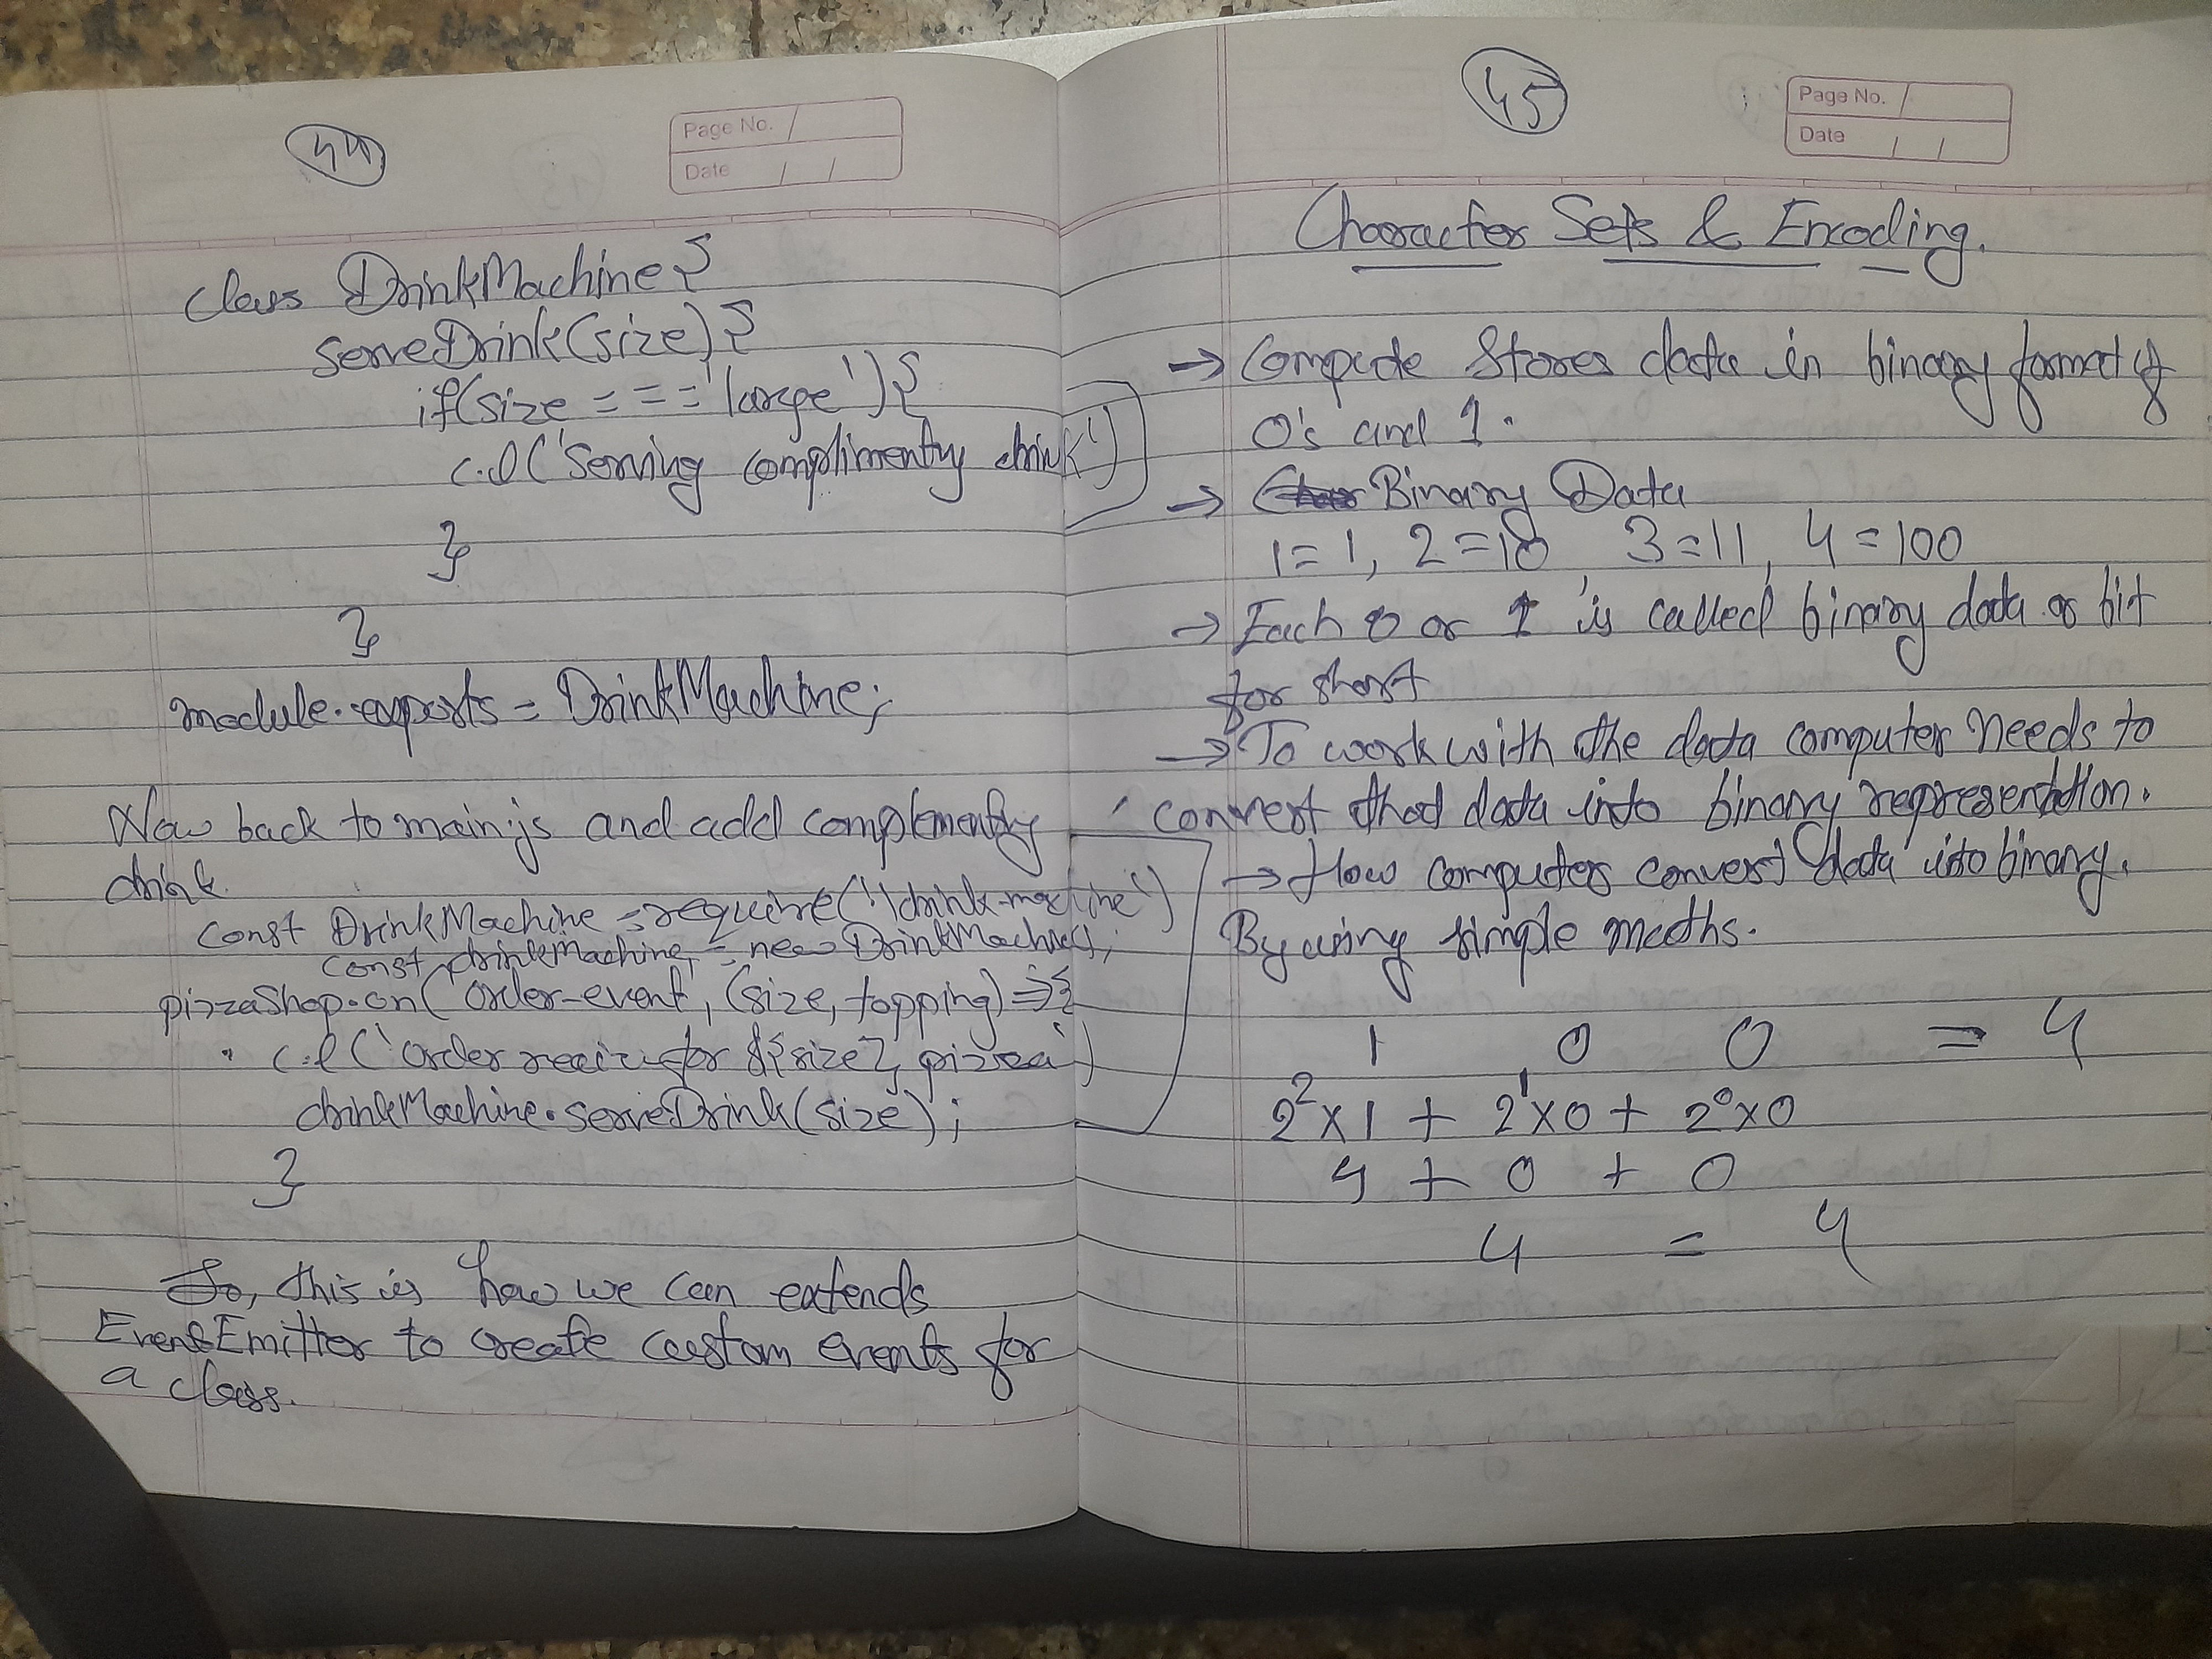 44
Page No.
Date
class DrinkMachine {
serveDrink(size) {
if(size === 'large') {
c.l('Serving complimentry drink')
}
}
module.exports = DrinkMachine;
Now back to main.js and add complementry
drink.
const DrinkMachine = require('./drink-machine')
const drinkMachine = new DrinkMachine();
pizzaShop.on('order-event', (size, topping) => {
c.l(`Order recive for ${size} pizza`)
drinkMachine.serveDrink(size);
}
So, this is how we can extends
EventEmitter to create custom events for
a class.
45
Page No.
Date
Character Sets & Encoding.
→ Compute Stores data in binary format of
0's and 1.
→ Binary Data
1=1, 2=10 3=11, 4=100
→ Each 0 or 1 is called binary data or bit
for short
→ To work with the data computer needs to
convert that data into binary representation.
→ How computers convert data into binary.
By using simple maths.
1 0 0 = 4
2²×1 + 2¹×0 + 2⁰×0
4 + 0 + 0
4 = 4